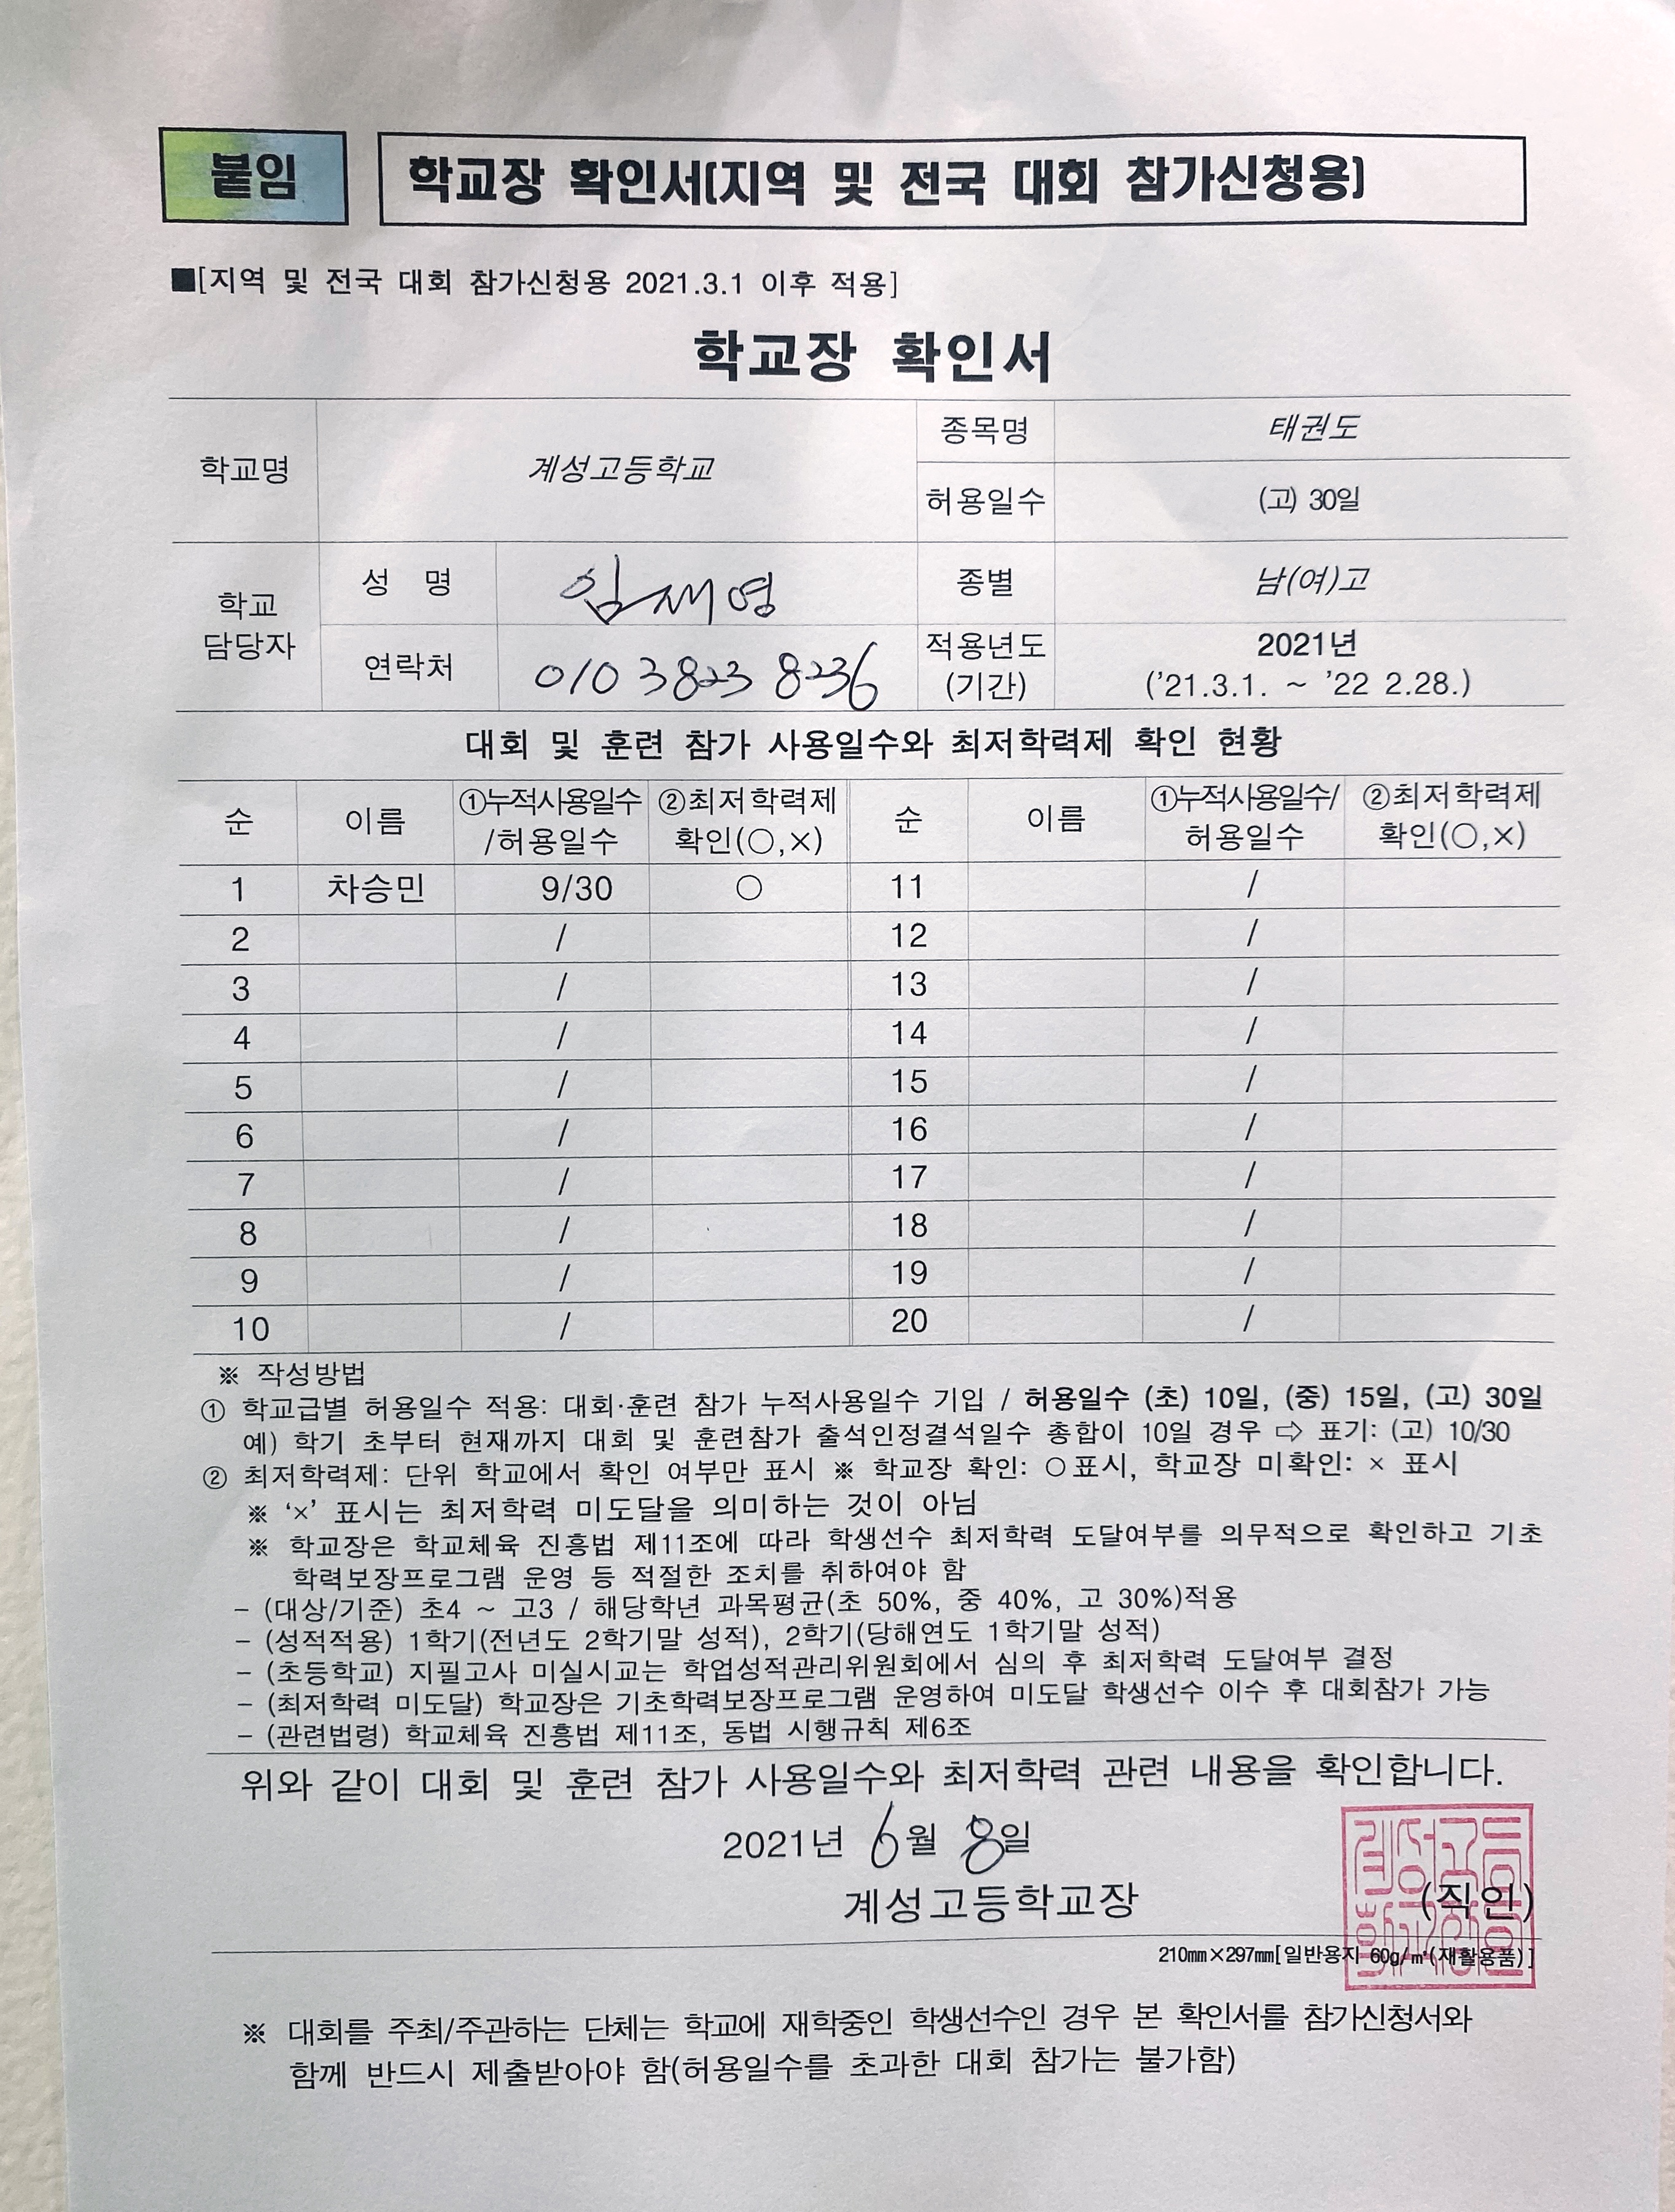 붙임
학교장 확인서(지역 및 전국 대회 참가신청용)
■[지역 및 전국 대회 참가신청용 2021.3.1 이후 적용]
학교장 확인서
학교명 계성고등학교 종목명 태권도
허용일수 (고) 30일
학교 담당자 성 명 임재영 종별 남(여)고
연락처 010 3823 8236 적용년도 (기간) 2021년 ('21.3.1. ~ '22 2.28.)
대회 및 훈련 참가 사용일수와 최저학력제 확인 현황
순 이름 ①누적사용일수 /허용일수 ②최저학력제 확인(○,×) 순 이름 ①누적사용일수/ 허용일수 ②최저학력제 확인(○,×)
1 차승민 9/30 ○ 11 /
2 / 12 /
3 / 13 /
4 / 14 /
5 / 15 /
6 / 16 /
7 / 17 /
8 / 18 /
9 / 19 /
10 / 20 /
※ 작성방법
① 학교급별 허용일수 적용: 대회·훈련 참가 누적사용일수 기입 / 허용일수 (초) 10일, (중) 15일, (고) 30일
예) 학기 초부터 현재까지 대회 및 훈련참가 출석인정결석일수 총합이 10일 경우 ⇨ 표기: (고) 10/30
② 최저학력제: 단위 학교에서 확인 여부만 표시 ※ 학교장 확인: ○표시, 학교장 미확인: × 표시
※ '×' 표시는 최저학력 미도달을 의미하는 것이 아님
※ 학교장은 학교체육 진흥법 제11조에 따라 학생선수 최저학력 도달여부를 의무적으로 확인하고 기초
학력보장프로그램 운영 등 적절한 조치를 취하여야 함
- (대상/기준) 초4 ~ 고3 / 해당학년 과목평균(초 50%, 중 40%, 고 30%)적용
- (성적적용) 1학기(전년도 2학기말 성적), 2학기(당해연도 1학기말 성적)
- (초등학교) 지필고사 미실시교는 학업성적관리위원회에서 심의 후 최저학력 도달여부 결정
- (최저학력 미도달) 학교장은 기초학력보장프로그램 운영하여 미도달 학생선수 이수 후 대회참가 가능
- (관련법령) 학교체육 진흥법 제11조, 동법 시행규칙 제6조
위와 같이 대회 및 훈련 참가 사용일수와 최저학력 관련 내용을 확인합니다.
2021년 6월 8일
계성고등학교장 (직인)
210㎜×297㎜[일반용지 60g/㎡(재활용품)]
※ 대회를 주최/주관하는 단체는 학교에 재학중인 학생선수인 경우 본 확인서를 참가신청서와
함께 반드시 제출받아야 함(허용일수를 초과한 대회 참가는 불가함)